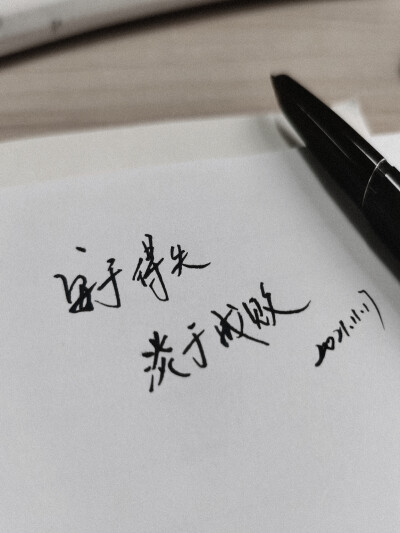 安于得失
淡于成败
2021.11.17